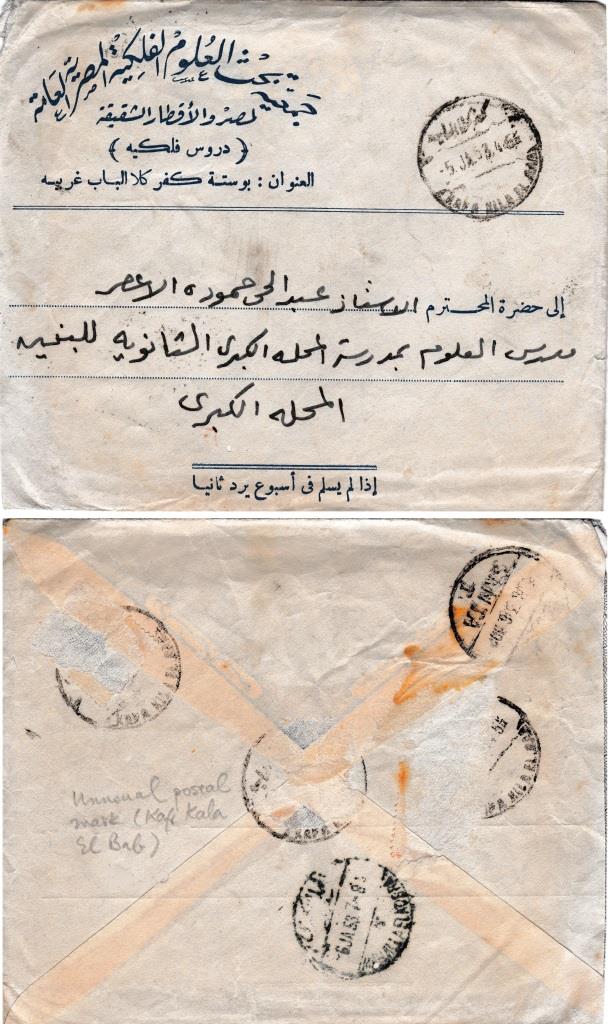 جمعية بحث العلوم الفلكية المصرية العامة
لمصر والأقطار الشقيقة
( دروس فلكيه )
العنوان : بوستة كفر كلا الباب غربيه
-5.JA.53.4-
KAFR KILA EL BAB
إلى حضرة المحترم الاستاذ عبد الحى حموده الاعصر
مدرس العلوم بمدرسة المحله الكبرى الثانويه للبنين
المحله الكبرى
إذا لم يسلم فى أسبوع يرد ثانيا
SANTA
KILA EL
Unusual postal
mark (Kafr Kala
El Bab)
-6.JA.53.7-